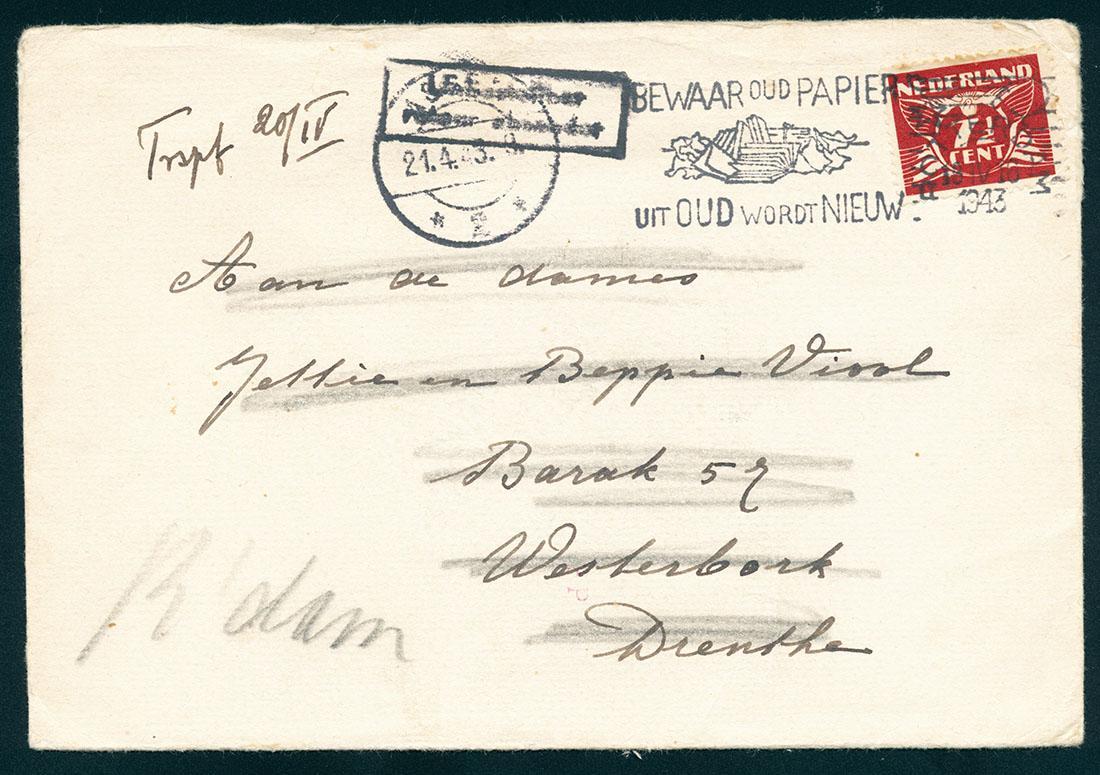 Trspt 20/IV
21.4.43.
* 2 *
BEWAAR OUD PAPIER
UIT OUD WORDT NIEUW.
NEDERLAND
7½
CENT
1943
Aan de dames
Jettie en Beppie Viool
Barak 57
Westerbork
Drenthe
R'dam